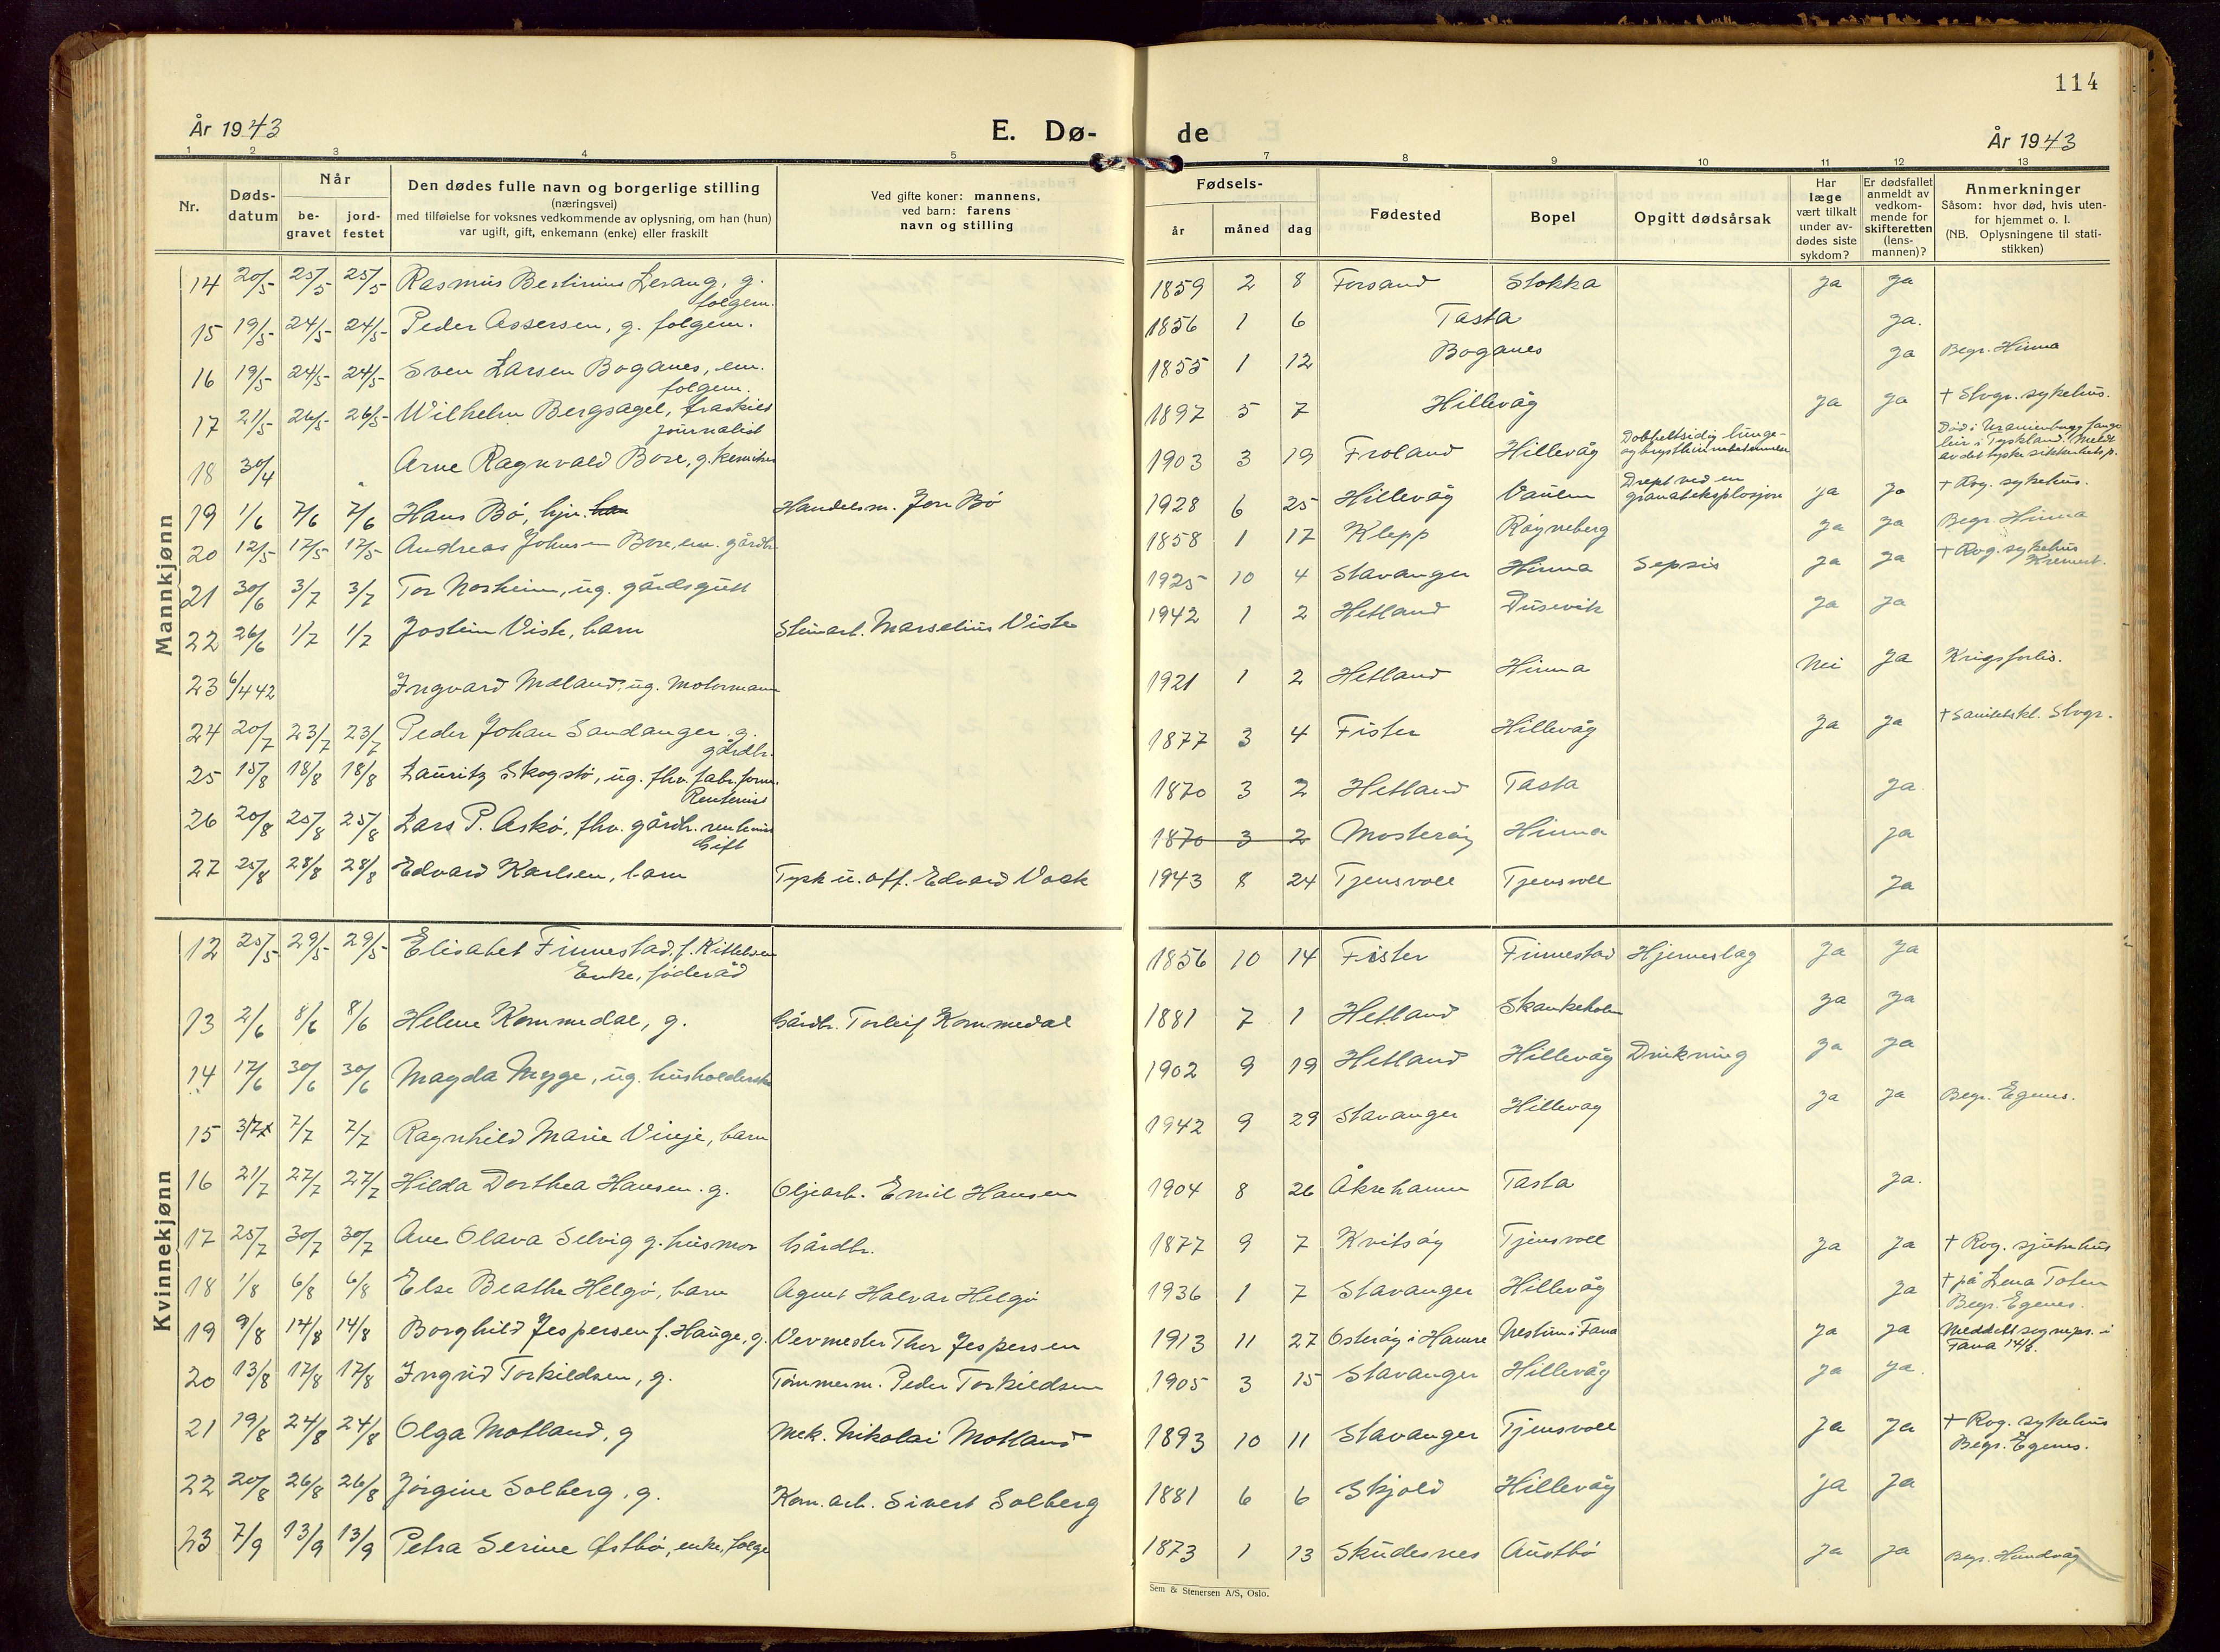 114
År 1943
E. Dø-
de
År 1943
1 2 3 4 5 7 8 9 10 11 12 13
Nr.
Døds-
datum
Når
be-
gravet
jord-
festet
Den dødes fulle navn og borgerlige stilling
(næringsvei)
med tilføielse for voksnes vedkommende av oplysning, om han (hun)
var ugift, gift, enkemann (enke) eller fraskilt
Ved gifte koner: mannens,
ved barn: farens
navn og stilling
Fødsels-
år måned dag
Fødested
Bopel
Opgitt dødsårsak
Har
læge
vært tilkalt
under av-
dødes siste
sykdom?
Er dødsfallet
anmeldt av
vedkom-
mende for
skifteretten
(lens-
mannen)?
Anmerkninger
Såsom: hvor død, hvis uten-
for hjemmet o. l.
(NB. Oplysningene til stati-
stikken)
Mannkjønn
14 20/5 25/5 25/5 Rasmus Bertinius Lerang, g. folgem. 1859 2 8 Forsand Stokka ja ja
15 19/5 24/5 24/5 Peder Assersen, g. folgem. 1856 1 6 Tasta ja.
16 19/5 24/5 24/5 Sven Larsen Boganes, em. folgem. 1855 1 12 Boganes ja Begr. Hinna
17 21/5 26/5 26/5 Wilhelm Bergsagel, fraskilt journalist 1897 5 7 Hillevåg ja ja + Stvgr. sykehus.
18 30/4 Arne Ragnvald Bore, g. kemiker 1903 3 19 Froland Hillevåg Dobbeltsidig lunge- og brysthinnebetennelse Død i fange- leir i Tyskland. Meldt av det tyske sikkerhetsp.
19 1/6 7/6 7/6 Hans Bø, hjv. Handelsm. Jon Bø 1928 6 25 Hillevåg Vaulen Drept ved en granateksplosjon ja ja + Rog. sykehus.
20 12/5 17/5 17/5 Andreas Johnsen Bore, em. gårdbr. 1858 1 17 Klepp Røyneberg ja ja Begr. Hinna
21 30/6 3/7 3/7 Tor Norheim, ug. gårdsgutt 1925 10 4 Stavanger Hinna Sepsis ja ja + Rog. sykehus Kremert.
22 26/6 1/7 1/7 Jostein Viste, barn Steinarb. Marselius Viste 1942 1 2 Hetland Dusevik ja ja
23 6/4 42 Ingvard Mæland, ug. Motormann 1921 1 2 Hetland Hinna Nei ja Krigsforlis.
24 20/7 23/7 23/7 Peder Johan Sandanger, g. gårdbr. 1877 3 4 Fister Hillevåg ja ja + Sanitetskl. Stvgr.
25 15/8 18/8 18/8 Lauritz Skogstø, ug. fhv. fabr.form. Rentenist 1870 3 2 Hetland Tasta ja
26 20/8 25/8 25/8 Lars P. Askø, fhv. gårdbr. rentenist Gift 1870 3 2 Mosterøy Hinna ja
27 25/8 28/8 28/8 Edvard Karlsen, barn Tysk u. off. Edvard Vock 1943 8 24 Tjensvoll Tjensvoll ja
Kvinnekjønn
12 25/5 29/5 29/5 Elisabet Finnestad, f. Kittelsen Enke, føderåd 1856 10 14 Fister Finnestad Hjerneslag ja ja
13 2/6 8/6 8/6 Helene Kommedal, g. Gårdbr. Torleif Kommedal 1881 7 1 Hetland Skankeholen ja ja
14 17/6 30/6 30/6 Magda Myge, ug. husholderske 1902 9 19 Hetland Hillevåg Drukning ja ja
15 3/7 7/7 7/7 Ragnhild Marie Vinje, barn 1942 9 29 Stavanger Hillevag ja ja Begr. Egenes.
16 21/7 27/7 27/7 Hilda Dorthea Hansen. g. Oljearb. Emil Hansen 1904 8 26 Åkrehamn Tasta ja.
17 25/7 30/7 30/7 Ane Olava Selvig g. husmor Gårdbr. 1877 9 7 Kvitsøy Tjensvoll ja ja + Rog. sjukehus
18 1/8 6/8 6/8 Else Beathe Helgø, barn Agent Halvar Helgø 1936 1 7 Stavanger Hillevåg ja + på Lena Toten Begr. Egenes.
19 9/8 14/8 14/8 Borghild Jespersen f. Hauge, g. Vevmester Thor Jespersen 1913 11 27 Osterøy i Hamre Nestun i Fana ja ja Meddelt sogneps. i Fana 14/8.
20 13/8 17/8 17/8 Ingrid Torkildsen, g. Tømmerm. Peder Torkildsen 1905 3 15 Stavanger Hillevåg ja ja.
21 19/8 24/8 24/8 Olga Motland, g Mek. Nikolai Motland 1893 10 11 Stavanger Tjensvoll ja ja + Rog. sykehus Begr. Egenes.
22 20/8 26/8 26/8 Jørgine Solberg, g. Kom. arb. Sivert Solberg 1881 6 6 Skjold Hillevåg ja ja
23 7/9 13/9 13/9 Petra Serine Østbø, enke, folge 1873 1 13 Skudesnes Austbø ja ja Begr. Hundvåg
Sem & Stenersen A/S, Oslo.